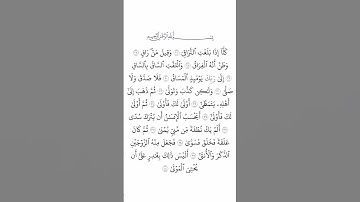 بِسْمِ اللَّهِ الرَّحْمَٰنِ الرَّحِيمِ
كَلَّا إِذَا بَلَغَتِ ٱلتَّرَاقِيَ ۝ وَقِيلَ مَنْ رَاقٍ ۝
وَظَنَّ أَنَّهُ ٱلْفِرَاقُ ۝ وَٱلْتَفَّتِ ٱلسَّاقُ بِٱلسَّاقِ
۝ إِلَىٰ رَبِّكَ يَوْمَئِذٍ ٱلْمَسَاقُ ۝ فَلَا صَدَّقَ وَلَا
صَلَّىٰ ۝ وَلَٰكِن كَذَّبَ وَتَوَلَّىٰ ۝ ثُمَّ ذَهَبَ إِلَىٰ
أَهْلِهِۦ يَتَمَطَّىٰٓ ۝ أَوْلَىٰ لَكَ فَأَوْلَىٰ ۝ ثُمَّ أَوْلَىٰ
لَكَ فَأَوْلَىٰٓ ۝ أَيَحْسَبُ ٱلْإِنسَٰنُ أَن يُتْرَكَ سُدًى
۝ أَلَمْ يَكُ نُطْفَةً مِّن مَّنِىٍّ يُمْنَىٰ ۝ ثُمَّ كَانَ
عَلَقَةً فَخَلَقَ فَسَوَّىٰ ۝ فَجَعَلَ مِنْهُ ٱلزَّوْجَيْنِ
ٱلذَّكَرَ وَٱلْأُنثَىٰٓ ۝ أَلَيْسَ ذَٰلِكَ بِقَٰدِرٍ عَلَىٰٓ أَن
يُحْـِۧىَ ٱلْمَوْتَىٰ ۝